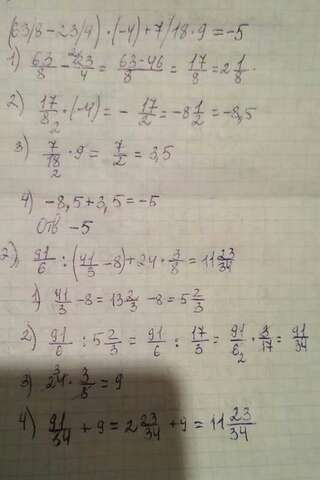 (63/8-23/4)·(-4)+7/18·9=-5
1) 63/8 - 23/4 = 63-46/8 = 17/8 = 2 1/8.
2) 17/8·(-4)= - 17/2 = -8 1/2 = -8,5
3) 7/18·9 = 7/2 = 3,5
4) -8,5+3,5=-5
Отв -5
2) 91/6 : (41/3 -8)+24·3/8 = 11 23/34
1) 41/3 -8 = 13 2/3 -8 = 5 2/3
2) 91/6 : 5 2/3 = 91/6 : 17/3 = 91/6 · 3/17 = 91/34
3) 24 · 3/8 = 9
4) 91/34 + 9 = 2 23/34 + 9 = 11 23/34